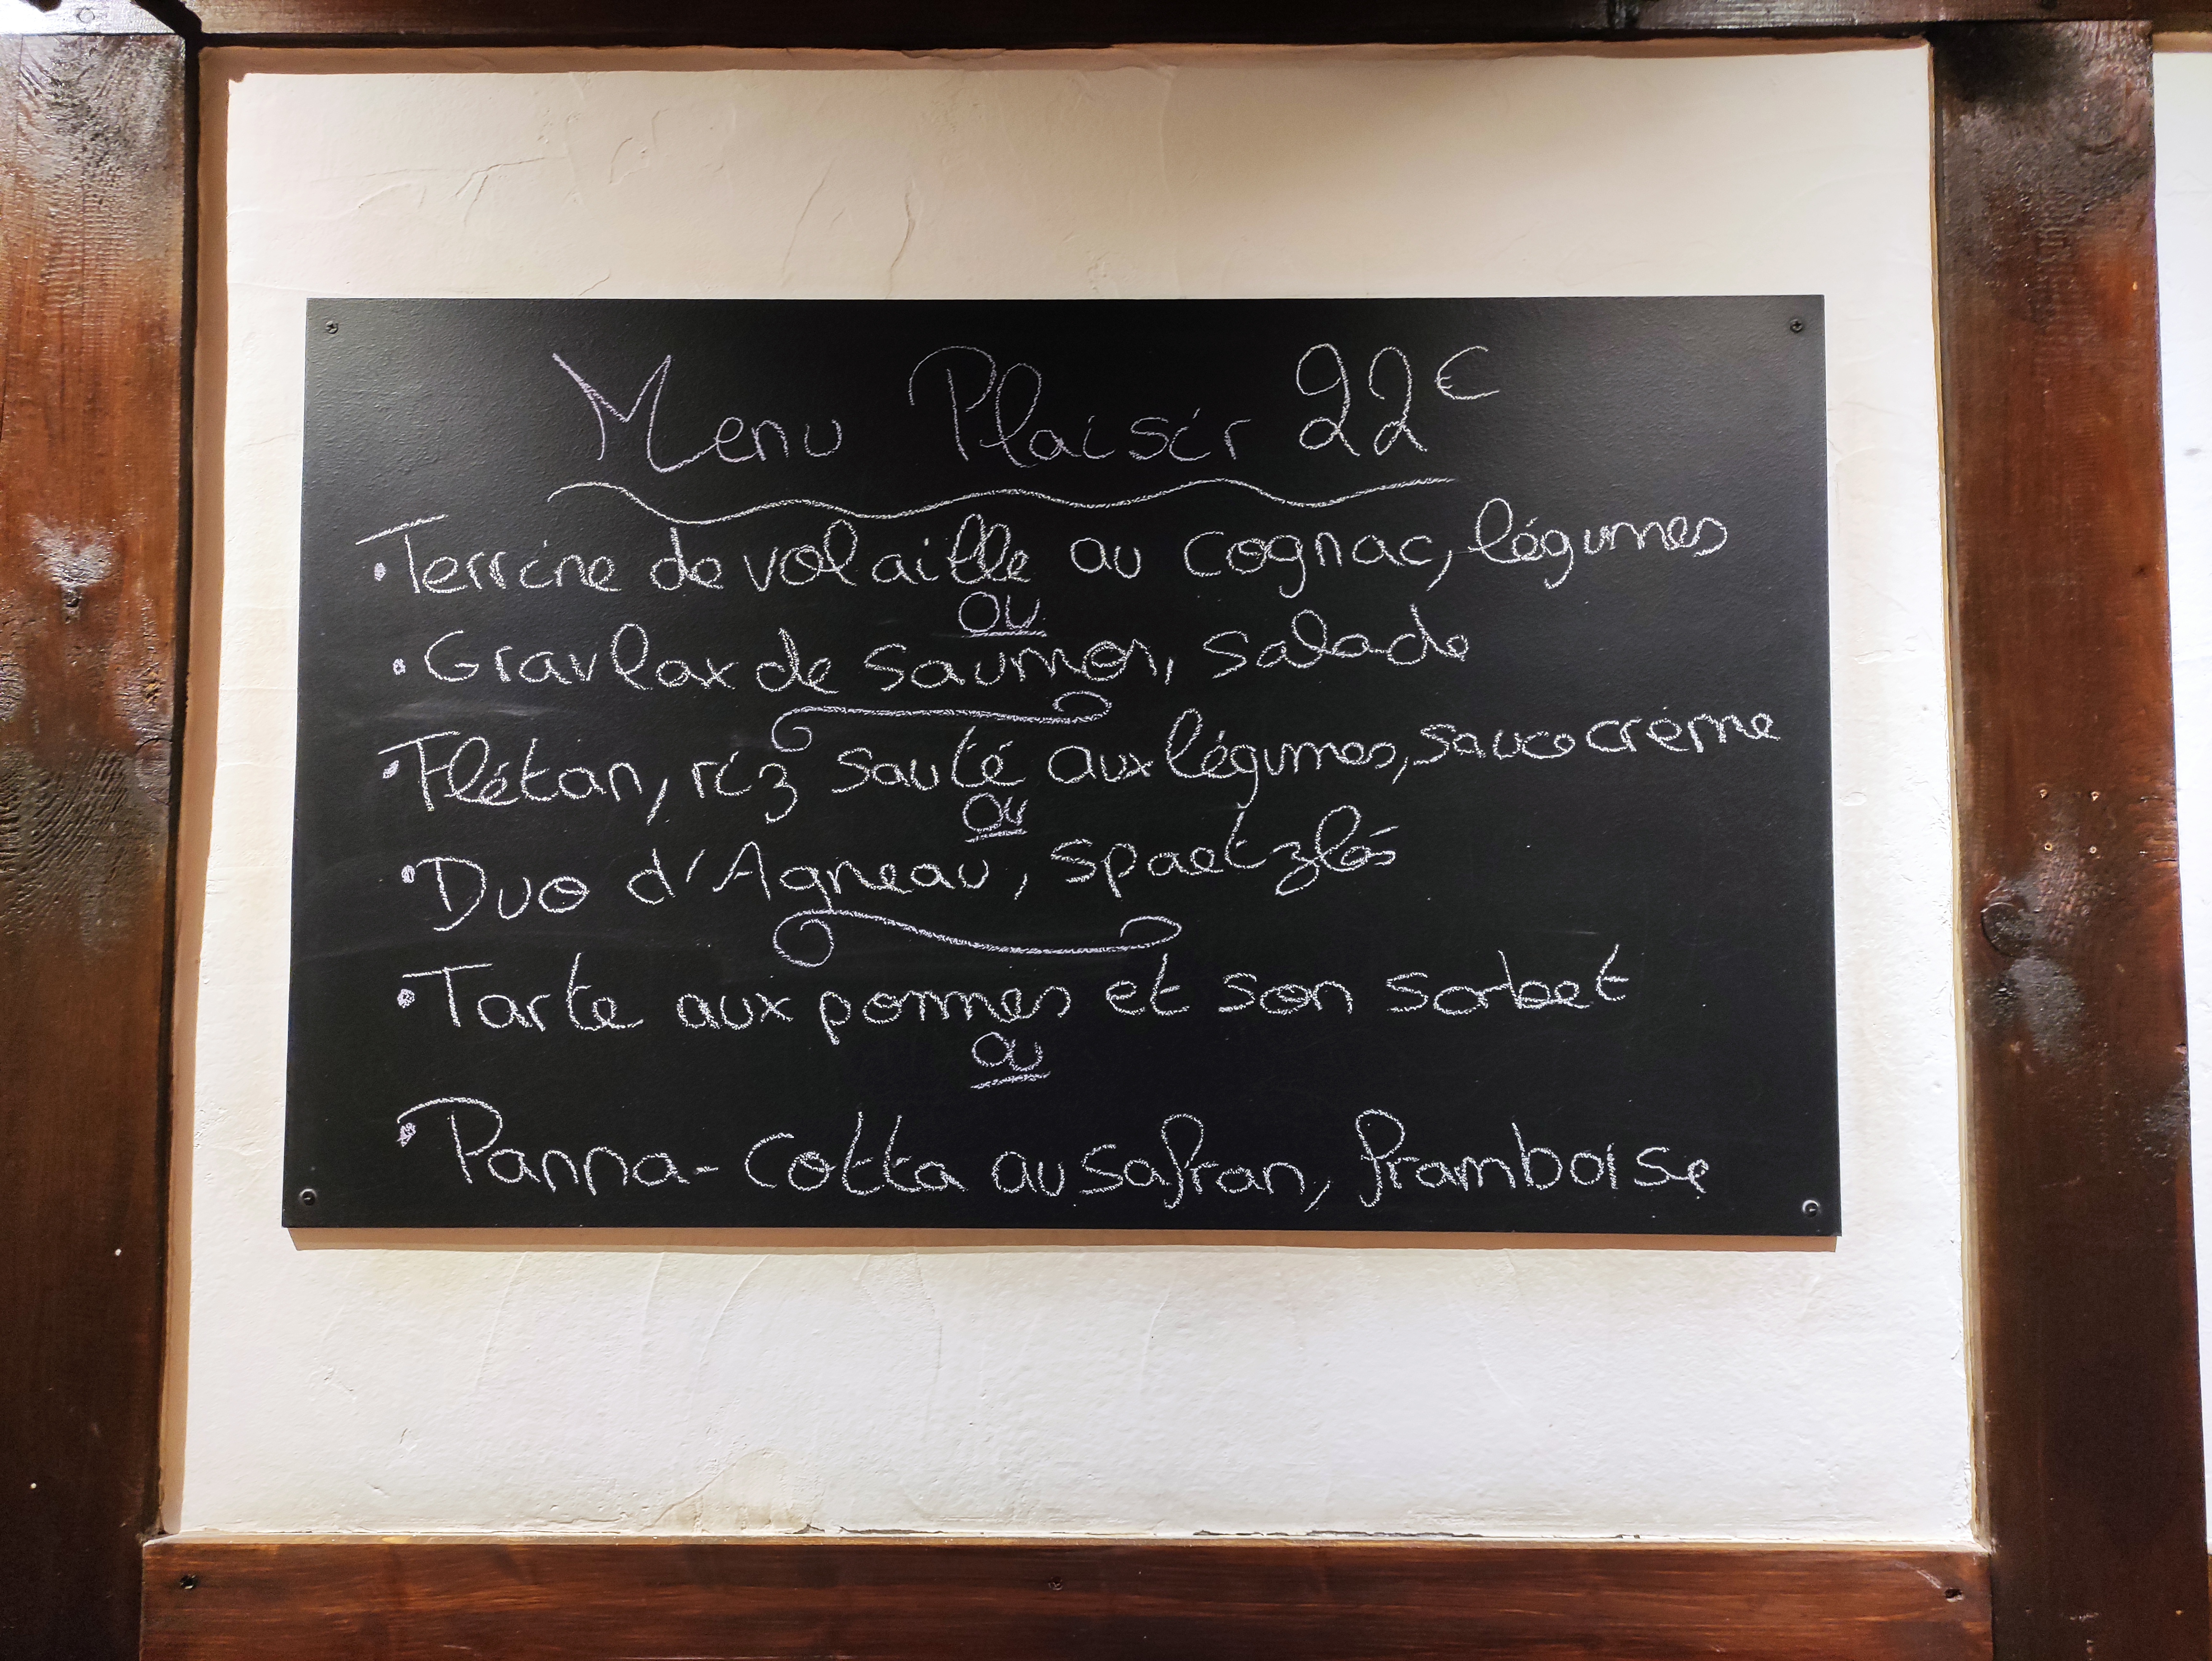 Menu Plaisir 22€
• Terrine de volaille au cognac, légumes
ou
• Gravlax de saumon, salade
• Flétan, riz sauté aux légumes, sauce crème
ou
• Duo d'Agneau, spaetzlés
• Tarte aux pommes et son sorbet
ou
• Panna-Cotta au safran, framboise